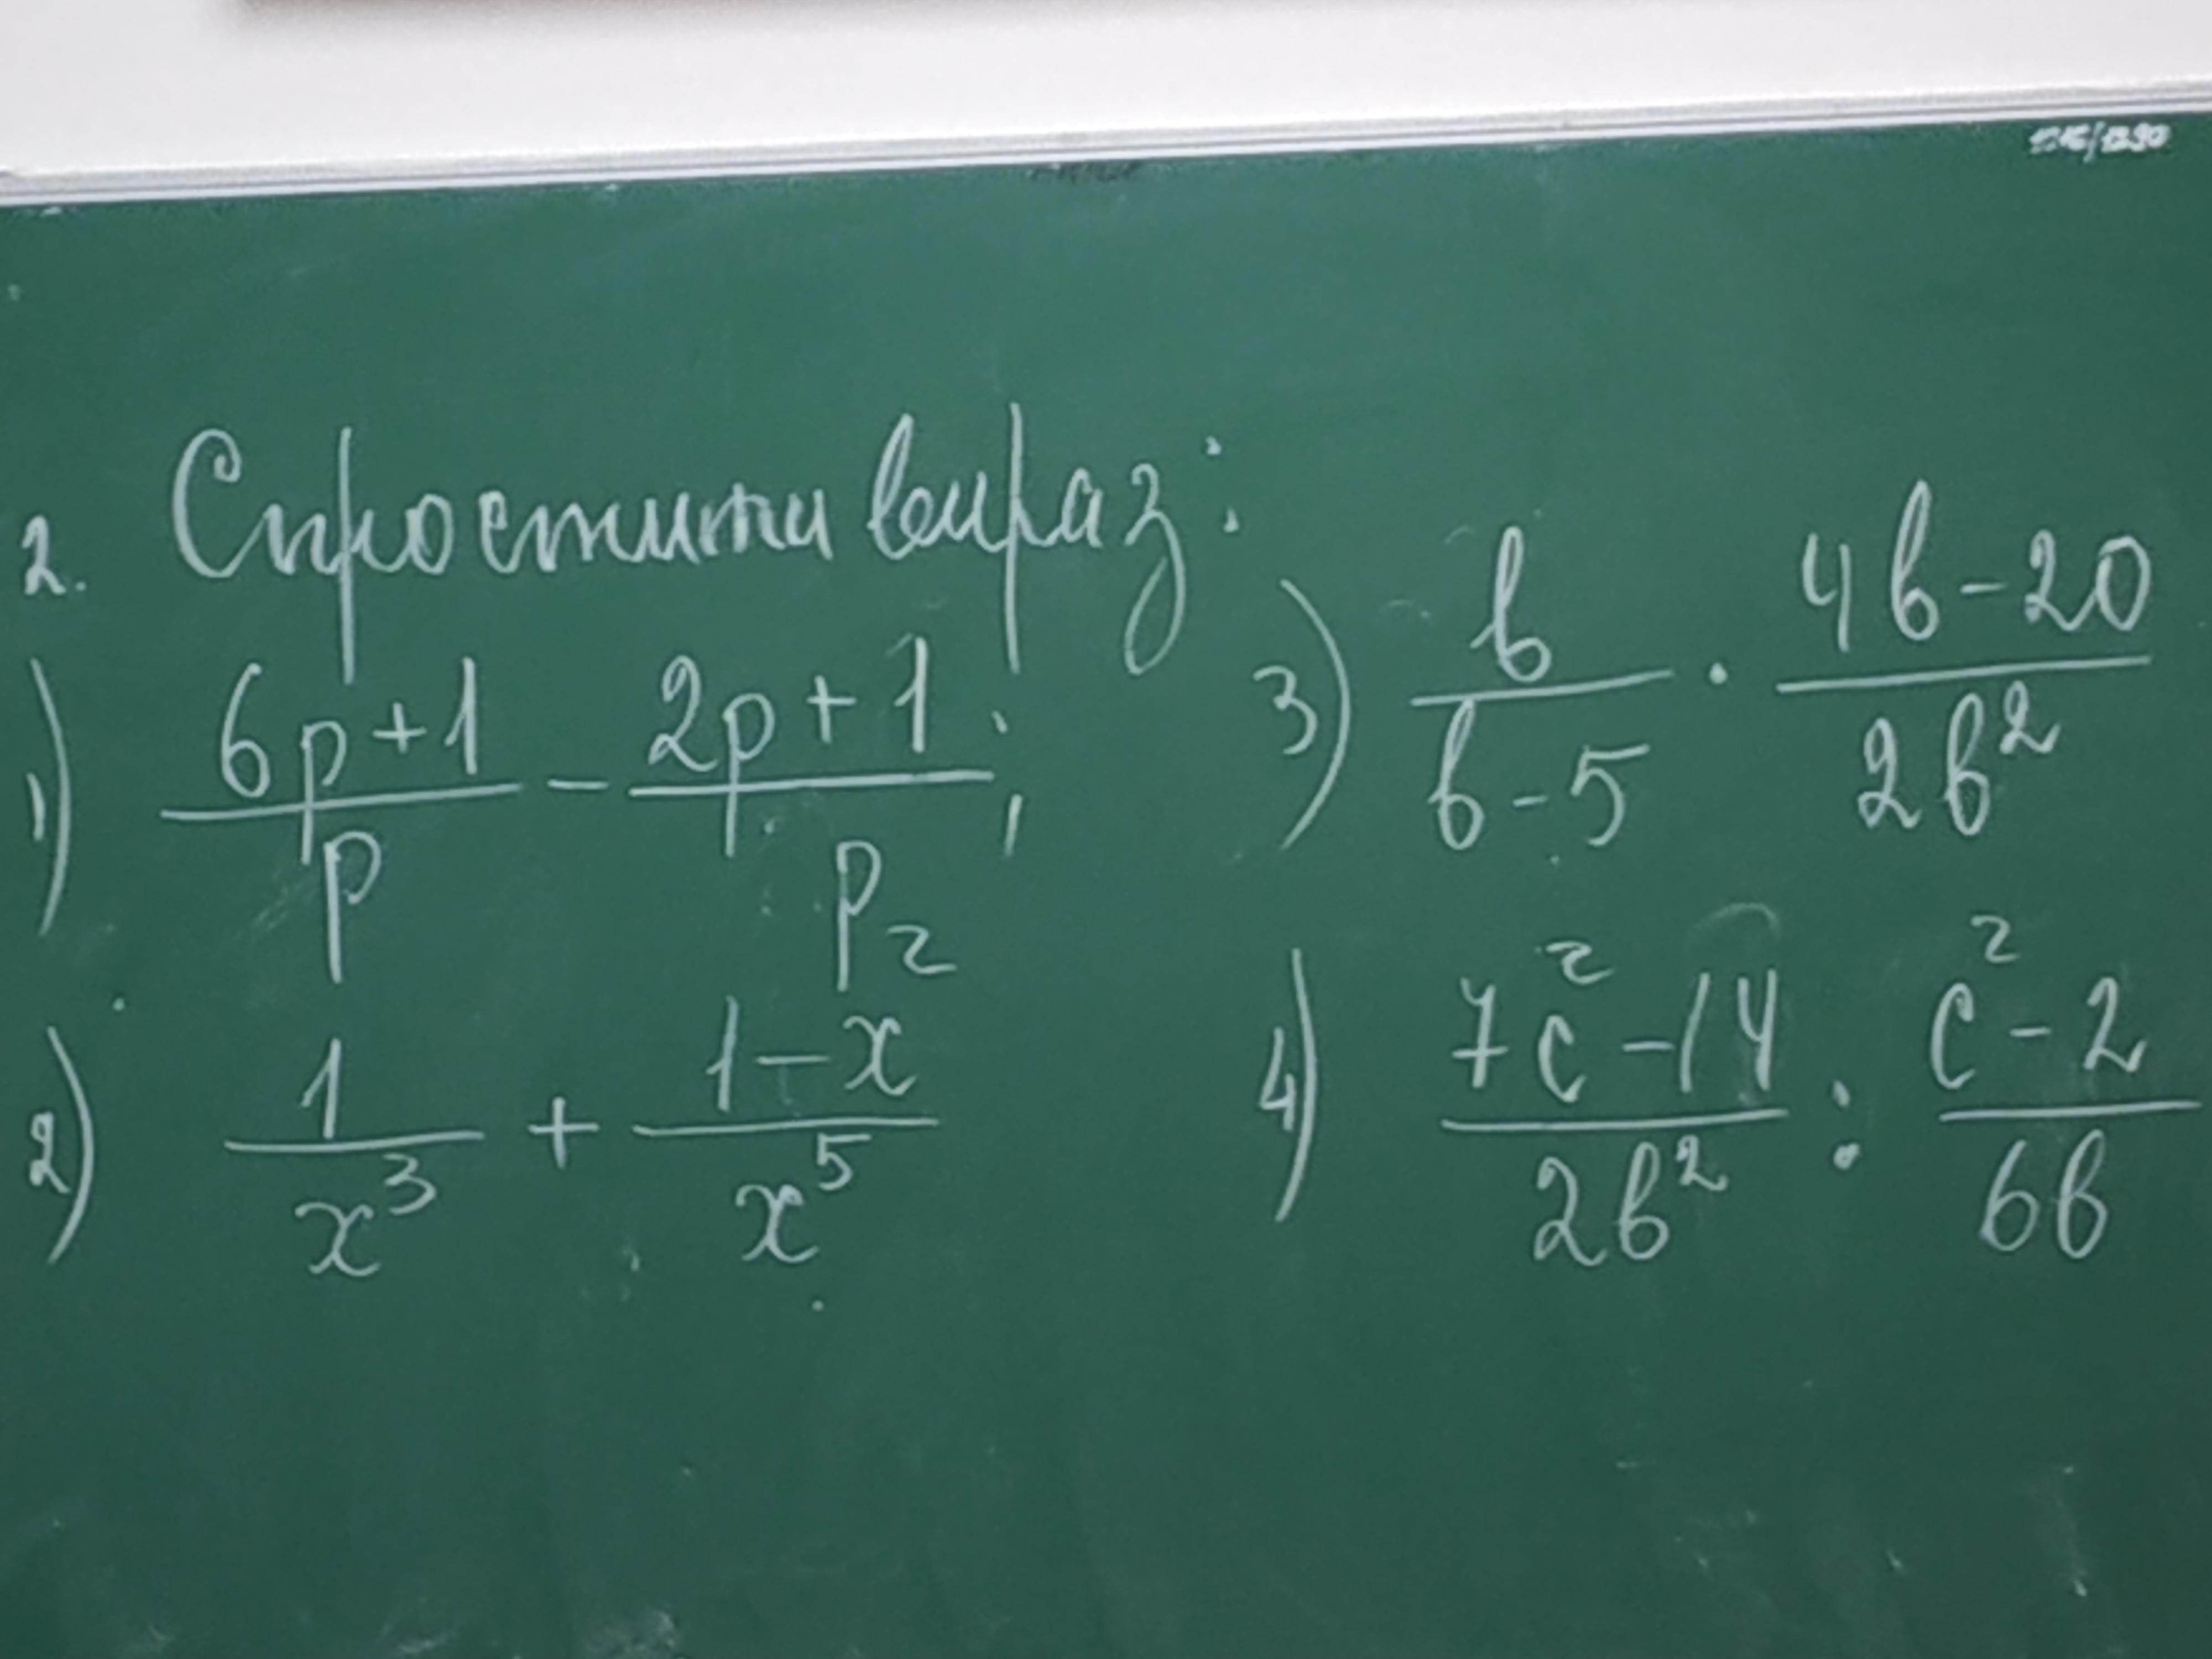 2. Спростити вираз:
1) (6p+1)/p - (2p+1)/p₂ ;
2) 1/x³ + (1-x)/x⁵
3) b/(b-5) · (4b-20)/(2b²)
4) (7c²-14)/(2b²) : (c²-2)/(6b)